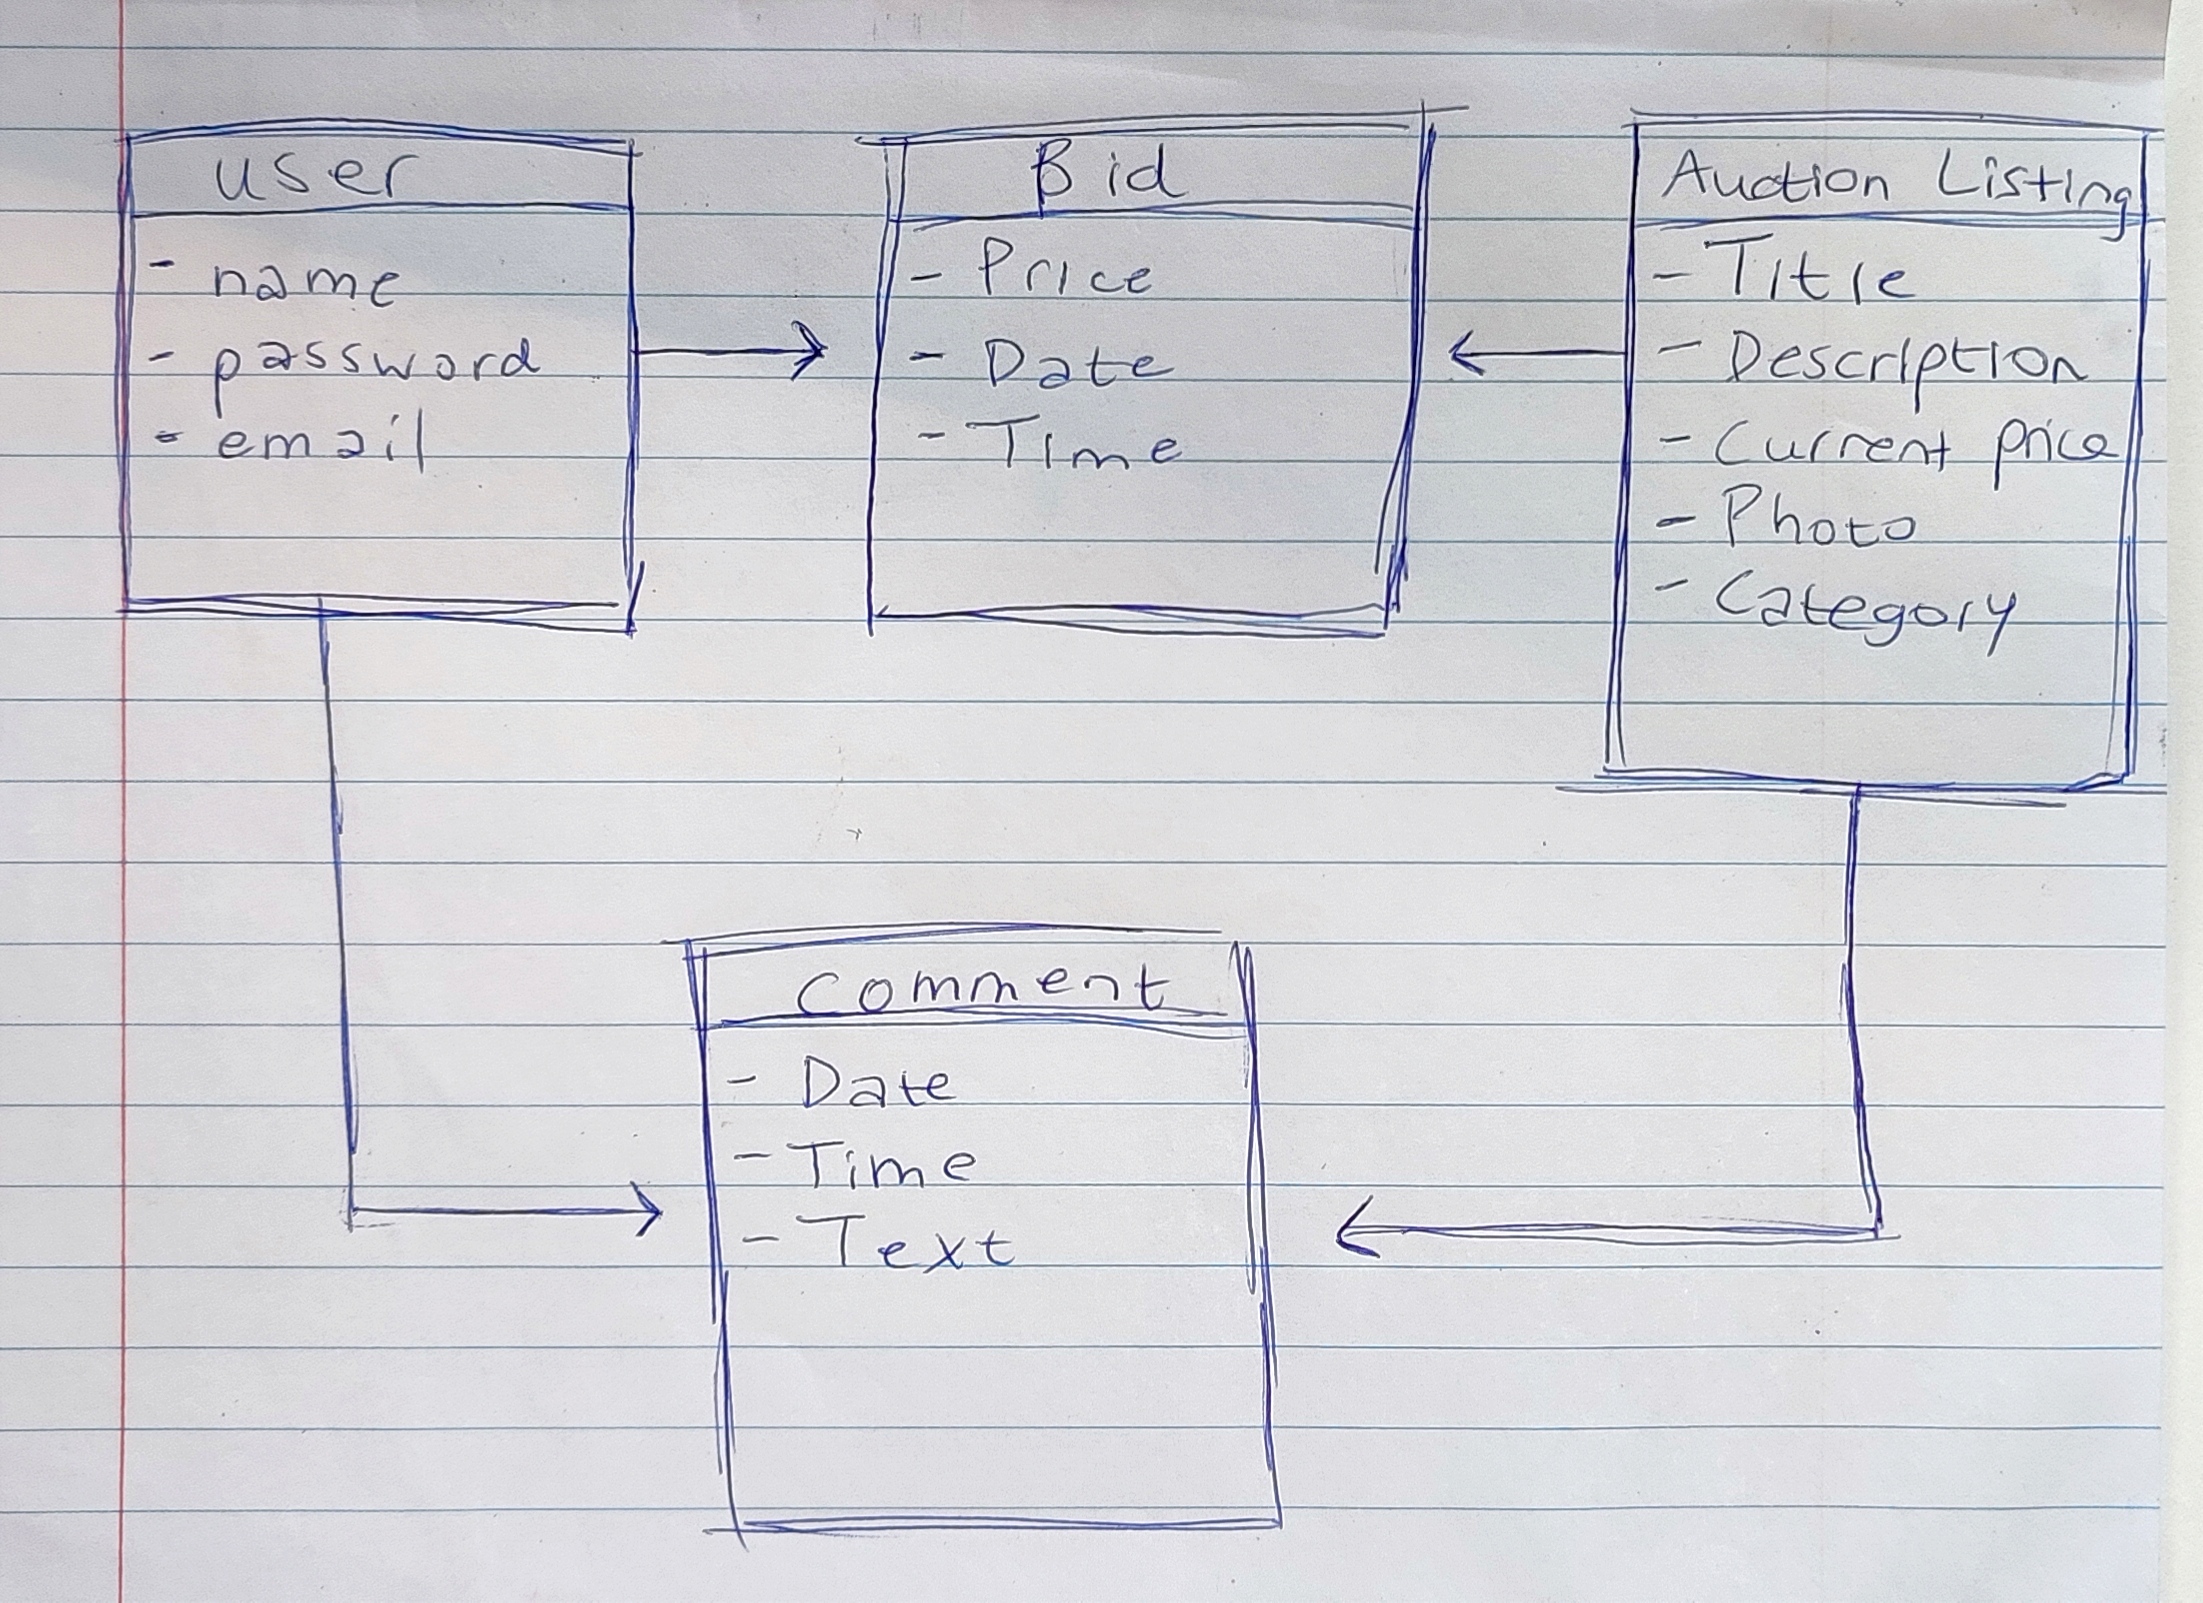 user
- name
- password
- email
Bid
- Price
- Date
- Time
Auction Listing
- Title
- Description
- Current price
- Photo
- Category
Comment
- Date
- Time
- Text